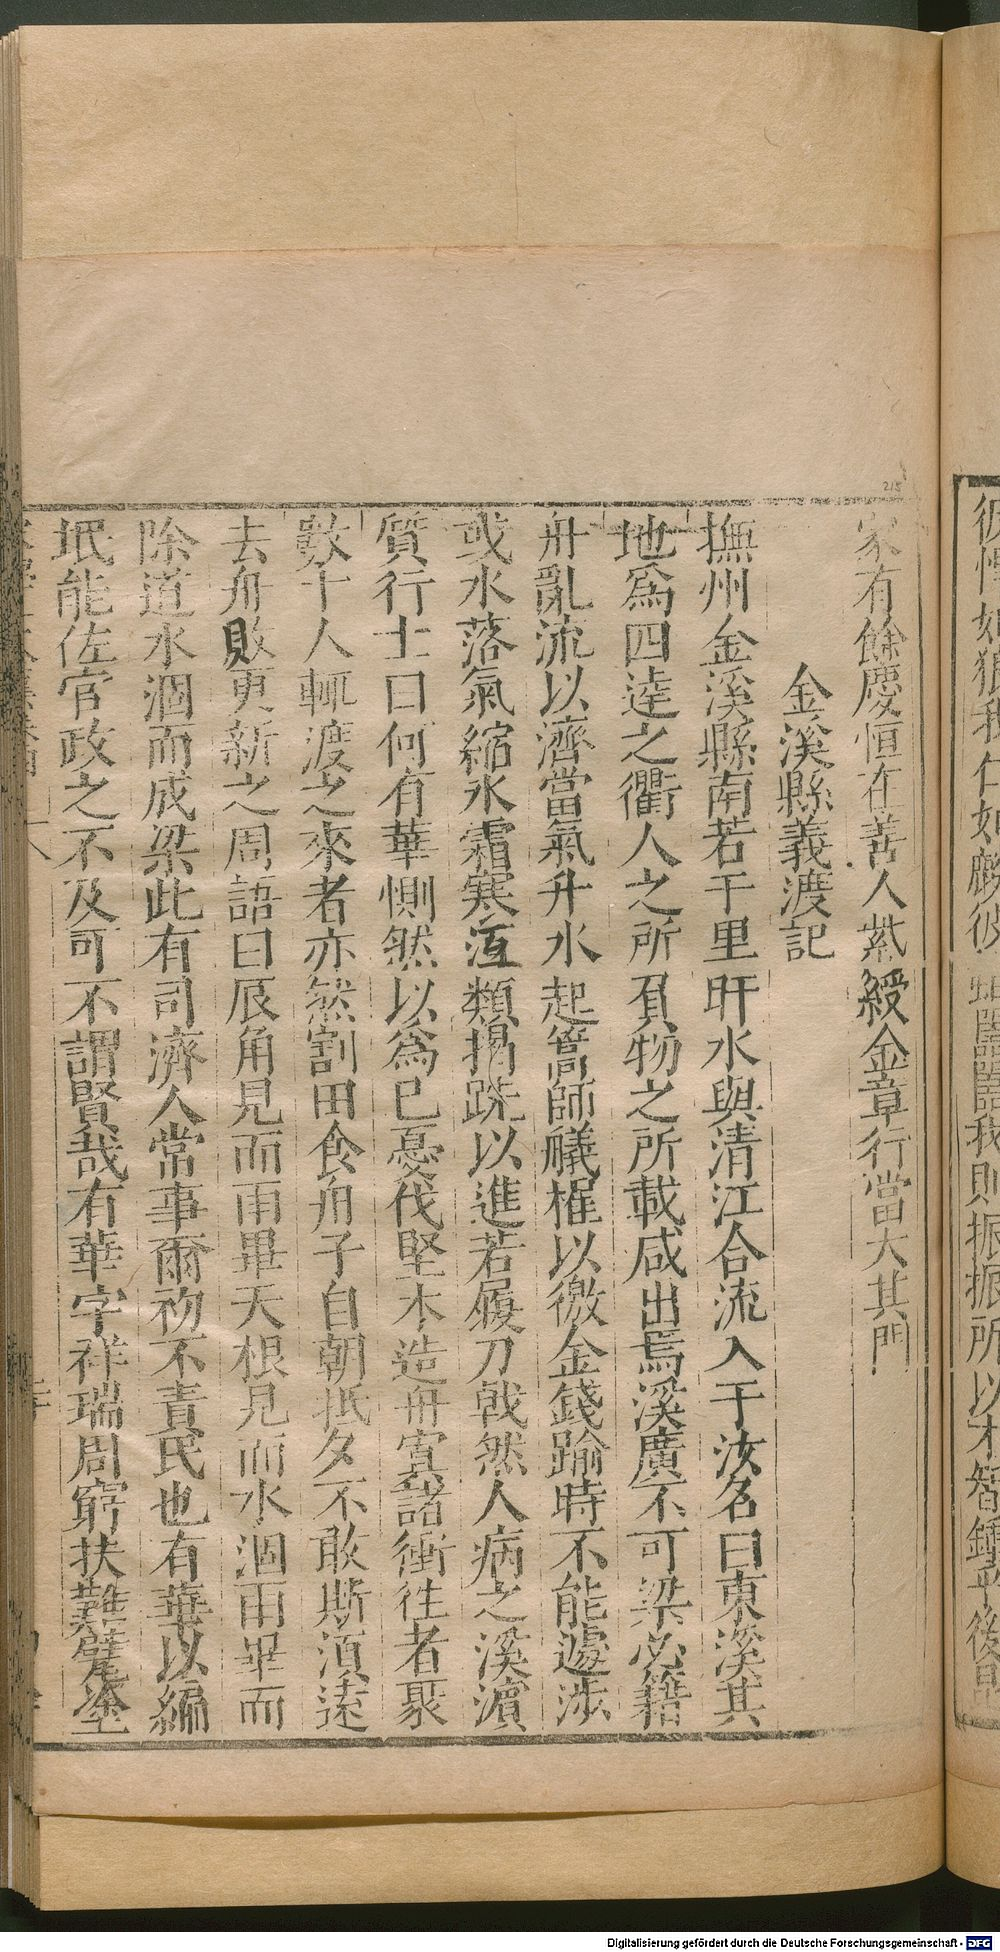 家有餘慶恒在善人紫綬金章行當大其門
金溪縣義渡記
撫州金溪縣南若干里旴水與清江合流入于汝名曰東溪其
地爲四逵之衢人之所負物之所載咸出焉溪廣不可梁必籍
舟亂流以濟當氣升水起篙師艤榷以徼金錢踰時不能遽涉
或水落氣縮水霜寒沍類揭跣以進若履刀戟然人病之溪濵
質行士曰何有華惻然以爲已憂伐堅木造舟寘諸衝徃者聚
數十人輒渡之來者亦然割田食舟子自朝抵夕不敢斯湏遠
去舟敗更新之周語曰辰角見而雨畢天根見而水涸雨畢而
除道水涸而成梁此有司濟人常事爾初不責民也有華以編
氓能佐官政之不及可不謂賢哉有華字祥瑞周窮扶難甓塗
我仁如麟彼
我則振振所以才智
Digitalisierung gefördert durch die Deutsche Forschungsgemeinschaft - DFG